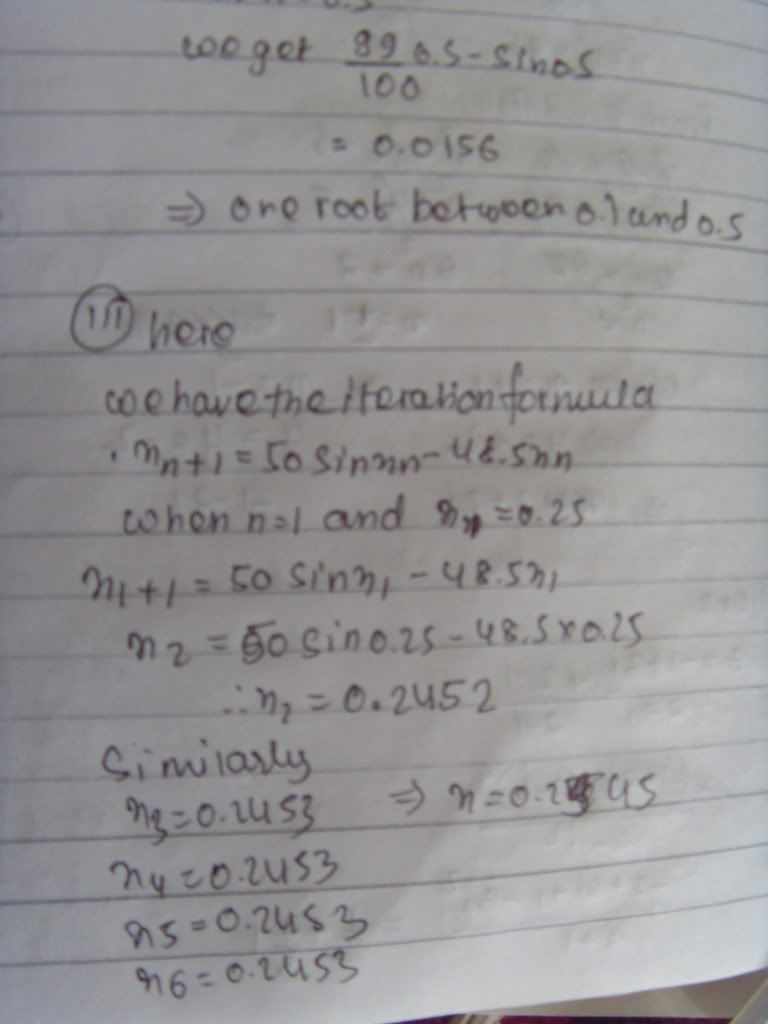 we get 99/100 0.5 - sin 0.5
= 0.0156
⇒ one root between 0.1 and 0.5
(iii) here
we have the iteration formula
x_n+1 = 50 sin x_n - 48.5x_n
when n=1 and x_n = 0.25
x_1+1 = 50 sin x_1 - 48.5x_1
x_2 = 50 sin 0.25 - 48.5 × 0.25
∴ x_2 = 0.2452
Similarly
x_3 = 0.2453 ⇒ x = 0.245
x_4 = 0.2453
x_5 = 0.2453
x_6 = 0.2453